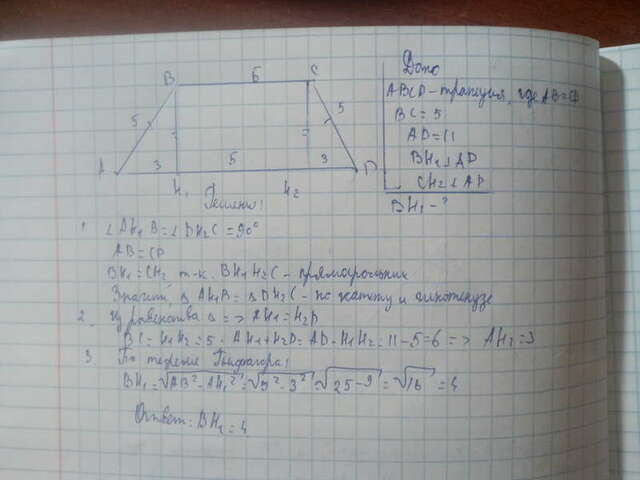 B 5 C
5 5
A 3 H₁ 5 H₂ 3 D
Дано
ABCD - трапеция, где AB = CD
BC = 5
AD = 11
BH₁ ⊥ AD
CH₂ ⊥ AD
BH₁ - ?
Решение:
1. ∠AH₁B = ∠DH₂C = 90°
AB = CD
BH₁ = CH₂ т.к. BH₁H₂C - прямоугольник
Значит ▵ AH₁B = ▵ DH₂C - по катету и гипотенузе
2. Из равенства ▵ => AH₁ = H₂D
BC = H₁H₂ = 5. AH₁ + H₂D = AD - H₁H₂ = 11 - 5 = 6 => AH₁ = 3
3. По теореме Пифагора:
BH₁ = √AB² - AH₁² = √5² - 3² = √25 - 9 = √16 = 4
Ответ: BH₁ = 4